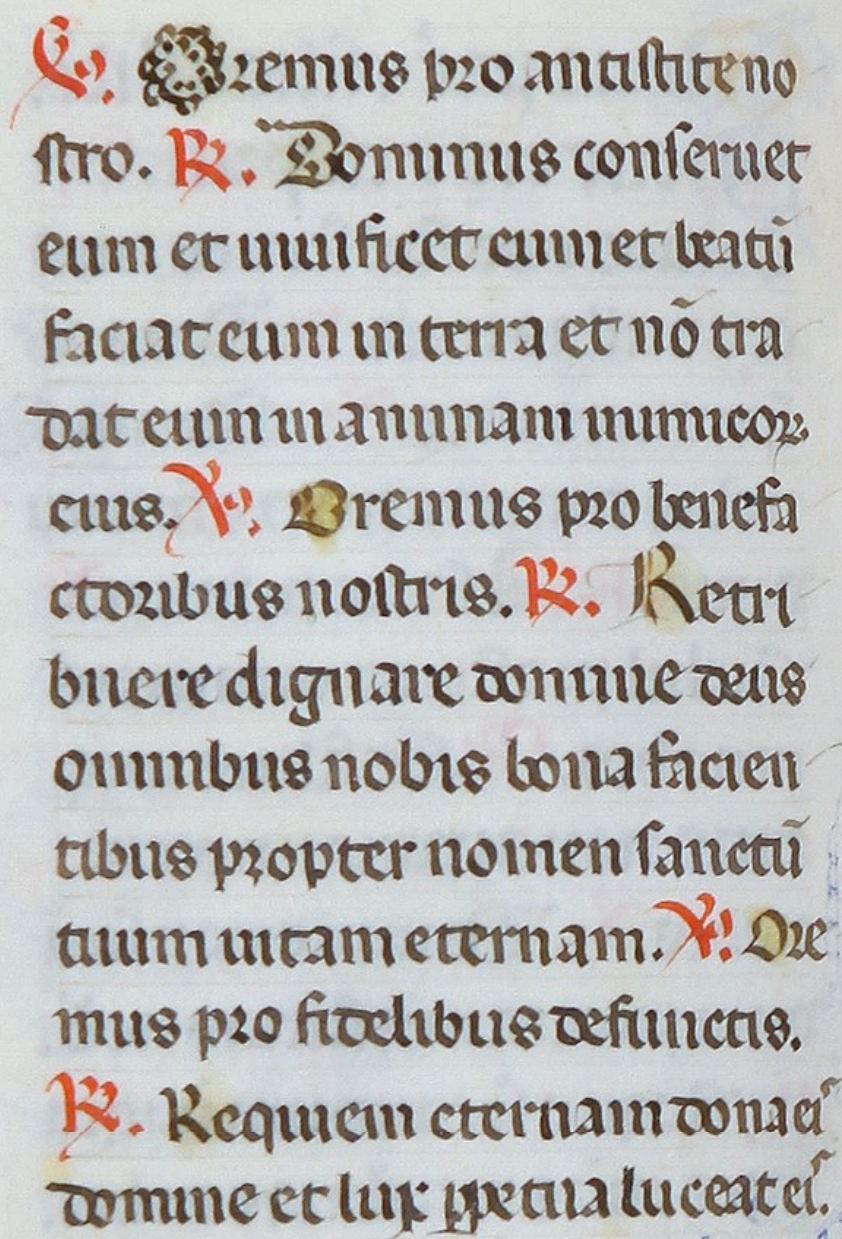 ℣. Oremus pro antistite no
stro. ℟. Dominus conseruet
eum et uiuificet eum et beatū
faciat eum in terra et nō tra
dat eum in animam inimicoꝝ
eius. ℣. Oremus pro benefa
ctoribus nostris. ℟. Retri
buere dignare domine deus
omnibus nobis bona facien
tibus propter nomen sanctū
tuum uitam eternam. ℣. Ore
mus pro fidelibus defunctis.
℟. Requiem eternam dona eiˢ
domine et lux ꝑpetua luceat eiˢ.